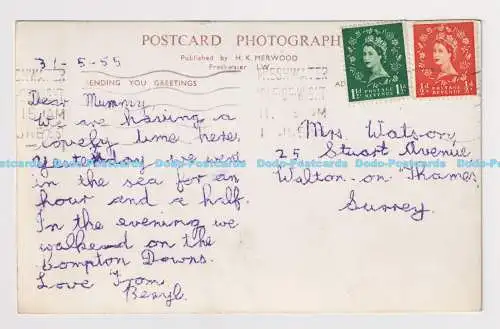 31-5-55
POSTCARD PHOTOGRAPH
Published by H. K. MERWOOD
Freshwater I.W.
SENDING YOU GREETINGS
Dear Mummy,
We are having a
lovely time here,
Yesterday we went
in the sea for an
hour and a half.
In the evening we
walked on the
Compton Downs.
Love From
Beryl.
1½D POSTAGE REVENUE 1½D
½D POSTAGE REVENUE ½D
Mrs. Watson,
25 Stuart Avenue
Walton-on-Thames
Surrey.
Dodo-Postcards Dodo-Postcards Dodo-Postcards Dodo-Postcards